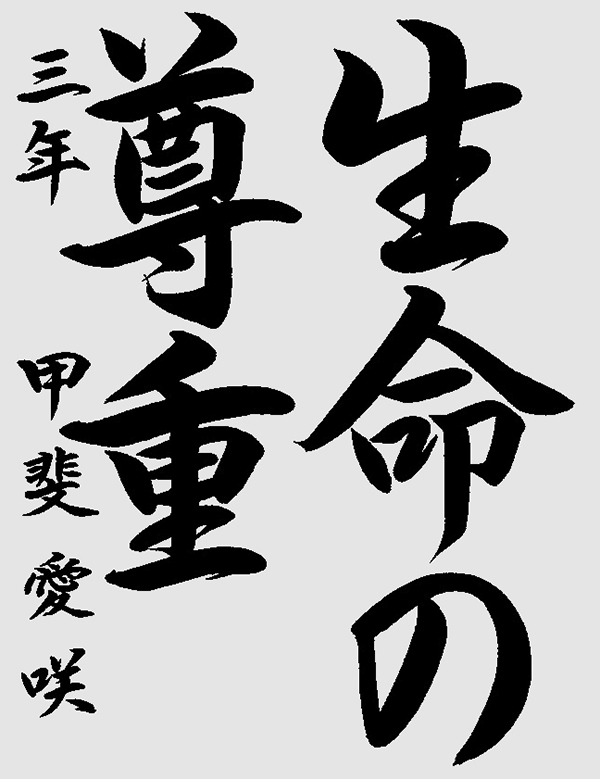 生命の
尊重
三年 甲斐愛咲